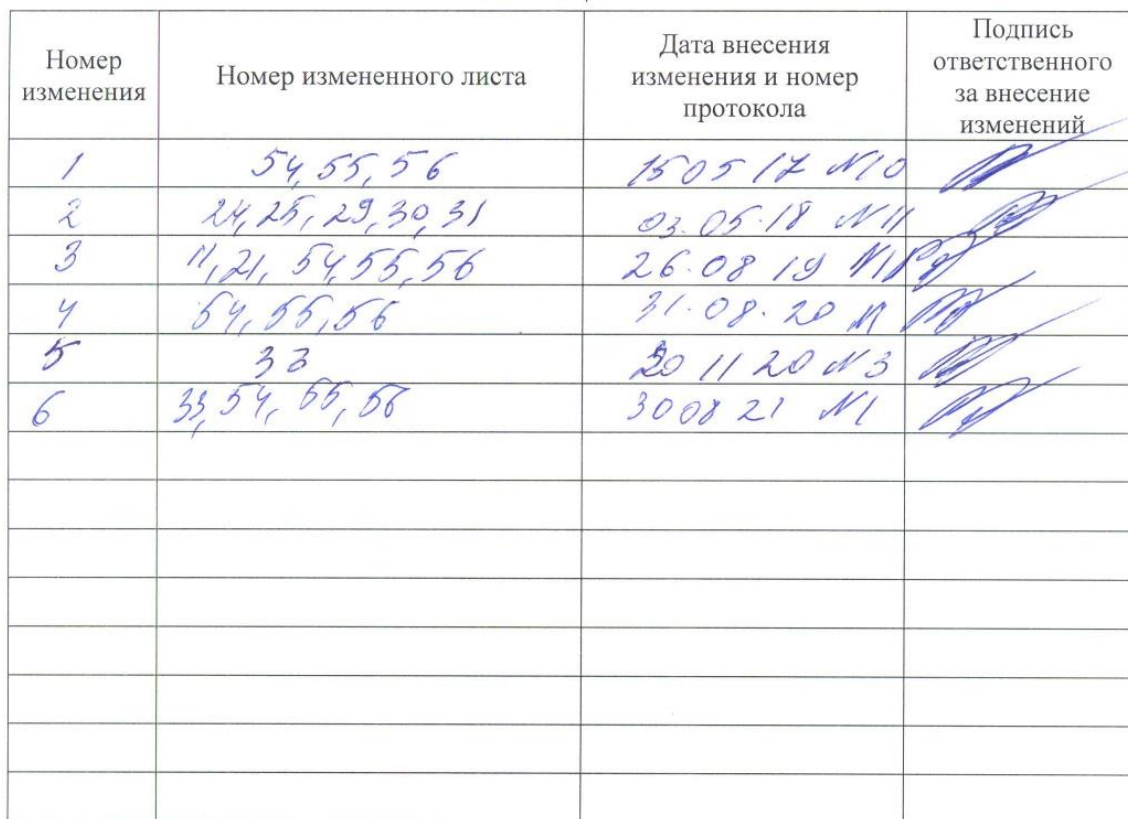 Номер изменения
Номер измененного листа
Дата внесения изменения и номер протокола
Подпись ответственного за внесение изменений
1 54, 55, 56 15 05 17 №10
2 24, 25, 29, 30, 31 03.05.18 №11
3 11, 21, 54, 55, 56 26.08 19 №1
4 54, 55, 56 31.08.20 №1
5 33 20 11 20 №3
6 33, 54, 55, 56 30 08 21 №1